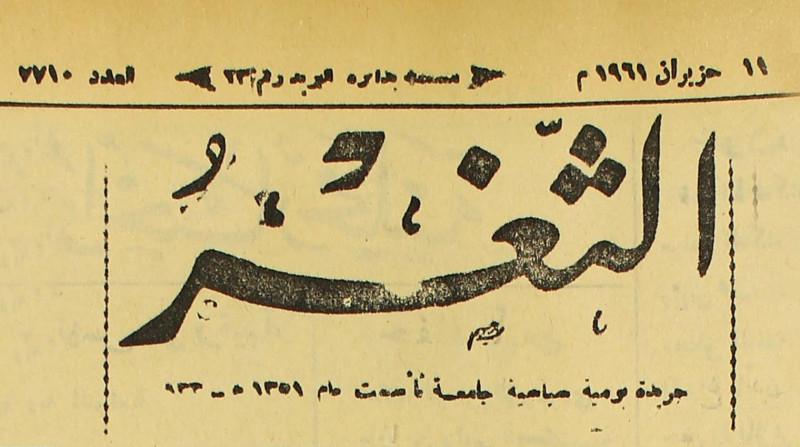 ١١ حزيران ١٩٦١ م مسجلة بدائرة البريد رقم ٢٣ العدد ٧٧١٠
الثَّغْرُ
جريدة يومية سياسية جامعة تأسست عام ١٣٥١ ه -